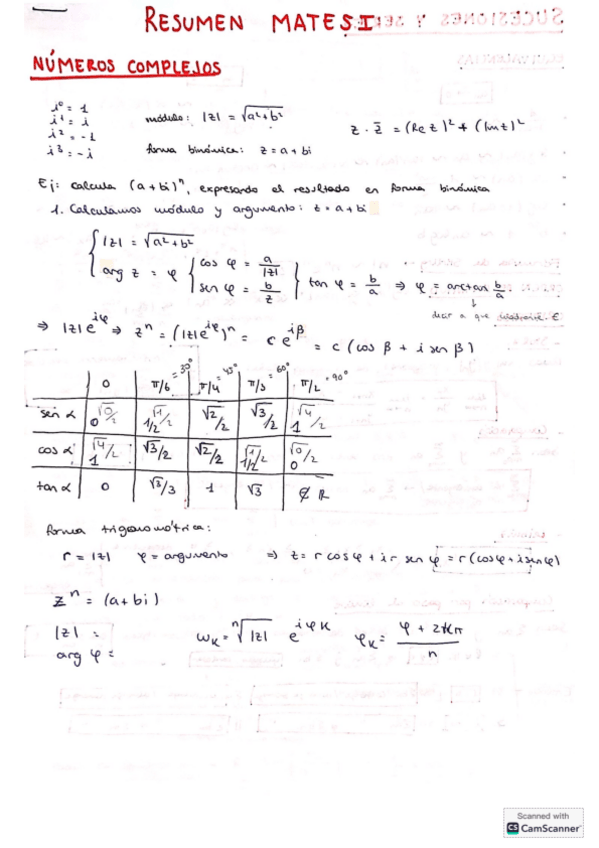 RESUMEN MATES I:
NÚMEROS COMPLEJOS
i⁰ = 1
i¹ = i
i² = -1
i³ = -i
módulo: |z| = √a²+b²
z · z̄ = (Re z)² + (Im z)²
forma binómica: z = a + bi
Ej: calcula (a+bi)ⁿ, expresando el resultado en forma binómica
1. Calculamos módulo y argumento: z = a + bi
|z| = √a²+b²
arg z = φ { cos φ = a/|z|
sen φ = b/z } tan φ = b/a ⇒ φ = arctan b/a.
↓
decir a que cuadrante ∈
⇒ |z|e^iφ ⇒ zⁿ = (|z|e^iφ)ⁿ = c e^iβ = c (cos β + i sen β)
0 π/6 = 30° π/4 = 45° π/3 = 60° π/2 = 90°
sen α √0/2 0 √1/2 1/2 √2/2 √3/2 √4/2 1
cos α √4/2 1 √3/2 √2/2 √1/2 1/2 √0/2 0
tan α 0 √3/3 1 √3 ∉ R
forma trigonométrica:
r = |z| φ = argumento ⇒ z = r cos φ + i r sen φ = r (cos φ + i sen φ)
zⁿ = (a + bi)
|z| =
arg φ =
ω_K = ⁿ√|z| e^iφK φ_K = φ + 2Kπ / n
Scanned with
CS CamScanner